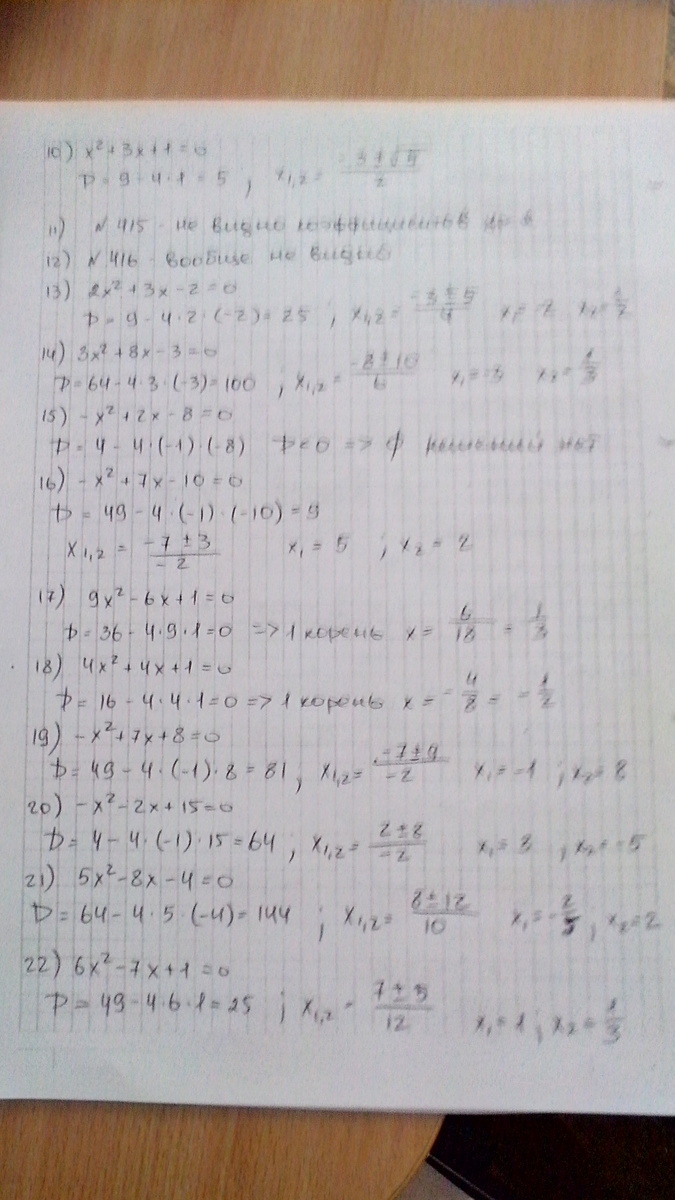 10) x² + 3x + 1 = 0
D = 9 - 4·1 = 5 ; x₁,₂ = (-3 ± √5)/2
11) №415 - не видно коэффициентов
12) №416 - вообще не видно
13) 2x² + 3x - 2 = 0
D = 9 - 4·2·(-2) = 25 ; x₁,₂ = (-3 ± 5)/4 x₁ = -2 x₂ = 1/2
14) 3x² + 8x - 3 = 0
D = 64 - 4·3·(-3) = 100 ; x₁,₂ = (-8 ± 10)/6 x₁ = -3 x₂ = 1/3
15) -x² + 2x - 8 = 0
D = 4 - 4·(-1)·(-8) D < 0 => ϕ решений нет
16) -x² + 7x - 10 = 0
D = 49 - 4·(-1)·(-10) = 9
x₁,₂ = (-7 ± 3)/-2 x₁ = 5 ; x₂ = 2
17) 9x² - 6x + 1 = 0
D = 36 - 4·9·1 = 0 => 1 корень x = 6/18 = 1/3
18) 4x² + 4x + 1 = 0
D = 16 - 4·4·1 = 0 => 1 корень x = -4/8 = -1/2
19) -x² + 7x + 8 = 0
D = 49 - 4·(-1)·8 = 81 ; x₁,₂ = (-7 ± 9)/-2 x₁ = -1 ; x₂ = 8
20) -x² - 2x + 15 = 0
D = 4 - 4·(-1)·15 = 64 ; x₁,₂ = (2 ± 8)/-2 x₁ = 3 ; x₂ = -5
21) 5x² - 8x - 4 = 0
D = 64 - 4·5·(-4) = 144 ; x₁,₂ = (8 ± 12)/10 x₁ = -2/5 ; x₂ = 2
22) 6x² - 7x + 1 = 0
D = 49 - 4·6·1 = 25 ; x₁,₂ = (7 ± 5)/12 x₁ = 1 ; x₂ = 1/3